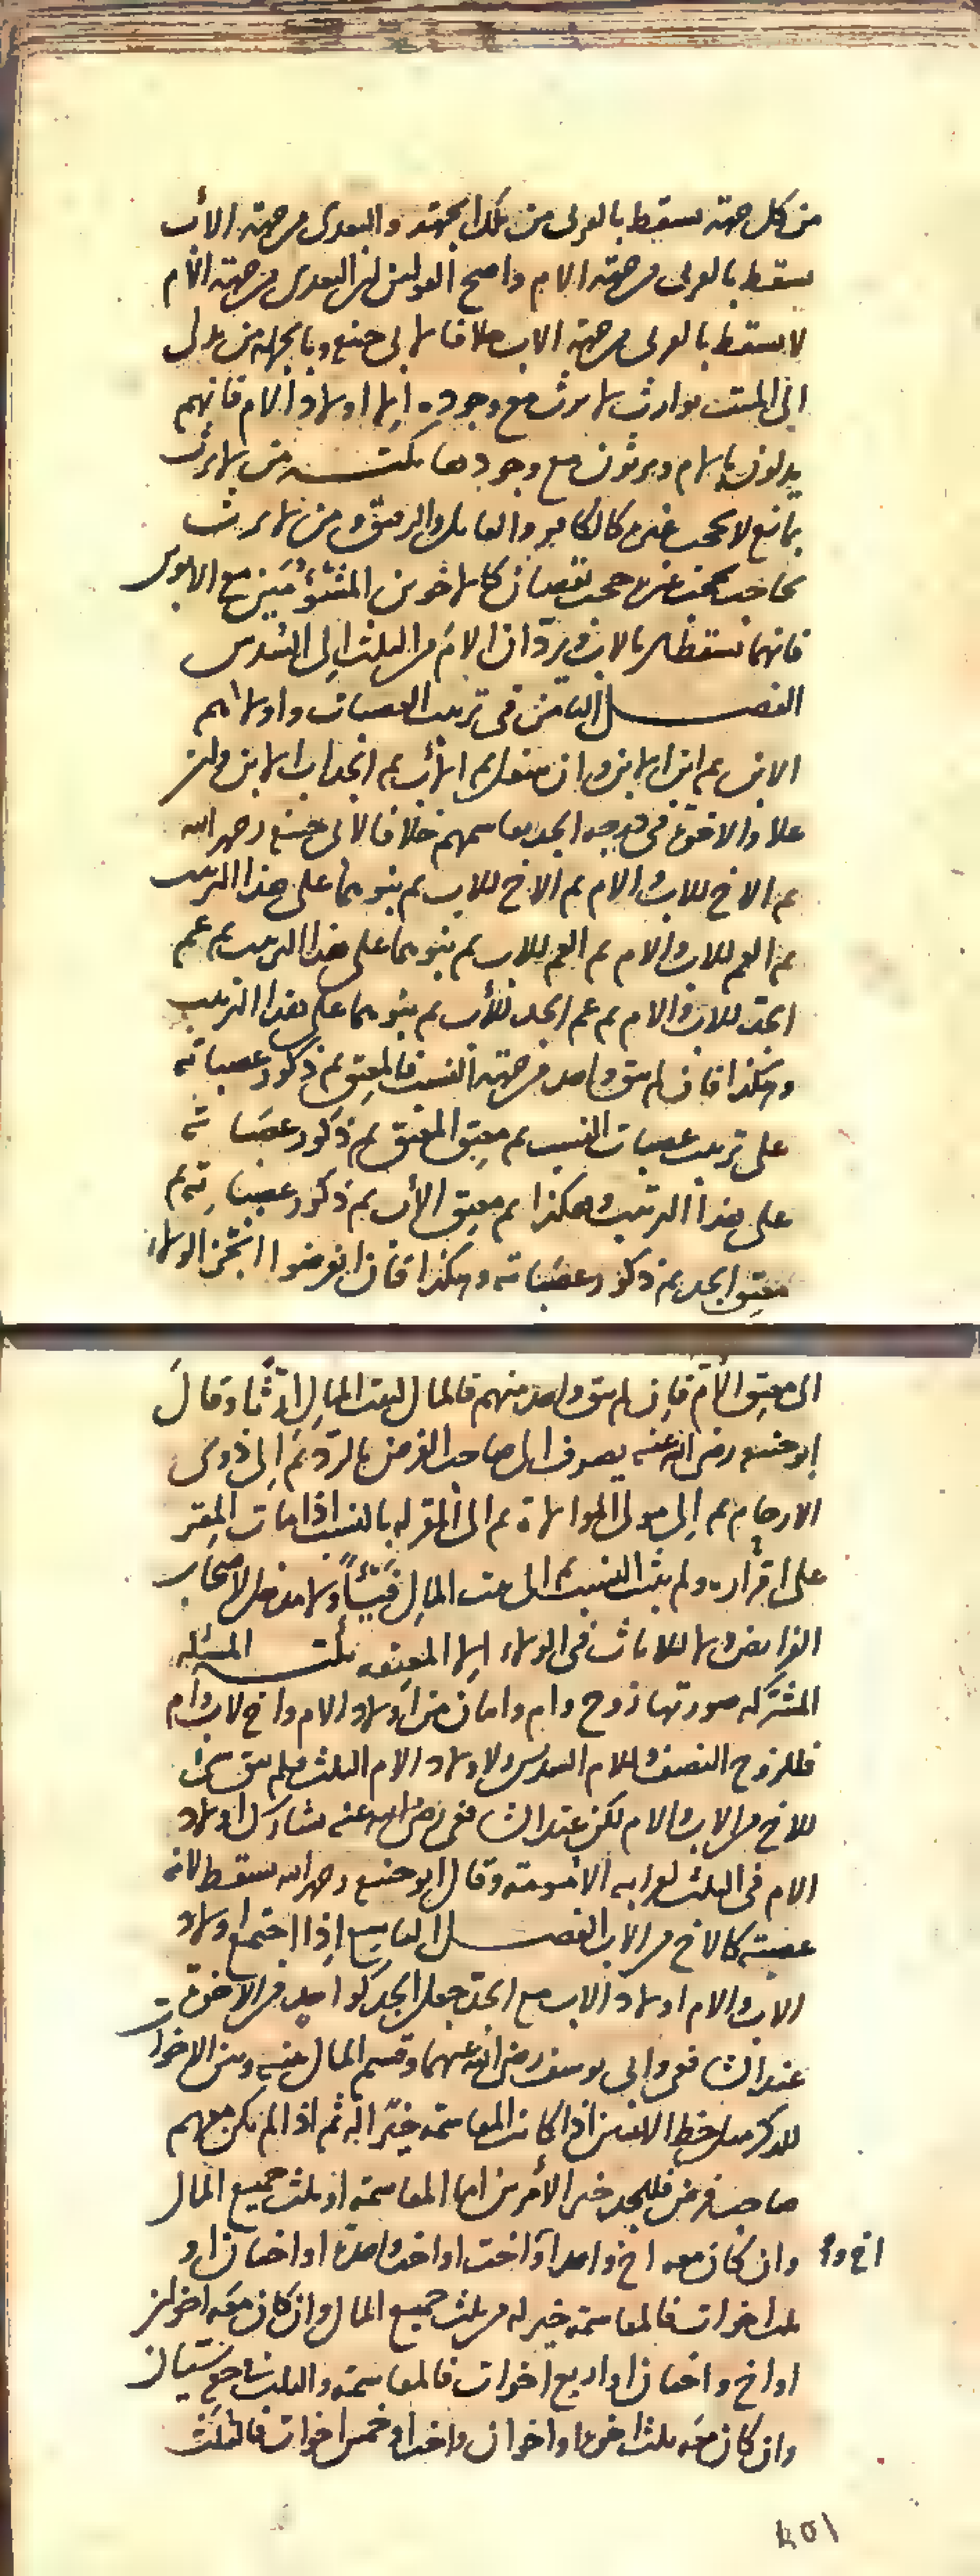 من كل جهة تسقط بالقربى من تلك الجهة والبعدى من جهة الأب
تسقط بالقربى من جهة الام واصح القولين ان البعدى من جهة الأم
لا تسقط بالقربى من جهة الاب خلافا لابى حنيفة وبالجملة من يدلى
الى الميت بوارث لا يرث مع وجوده إلا اولاد الام فانهم
يدلون بالام ويرثون مع وجودها نكتة من لا يرث
بمانع لا يحجب غيره كالكافر والقاتل والرقيق ومن لا يرث
بحاجب يحجب غيره حجب نقصان كالاخوين المنتومين مع الابوين
فانهما تسقطان بالاب ويردان الام من الثلث إلى السدس
الفصل الثامن فى ترتيب العصبات واولاهم
الابن ثم ابن الابن وان سفل ثم الأب ثم الجد اب الاب وان
علا والاخوة فى درجة الجد يقاسمهم خلافا لابى حنيفة رحمه الله
ثم الاخ للاب والام ثم الاخ للاب ثم بنوهما على هذا الترتيب
ثم العم للاب والام ثم العم للاب ثم بنوهما على هذا الترتيب ثم عم
الجد للاب والام ثم عم الجد للأب ثم بنوهما على هذا الترتيب
وهكذا فان لم يبق واحد من جهة النسب فالمعتق ثم ذكور عصباته
على ترتيب عصبات النسب ثم معتق المعتق ثم ذكور عصباته
على هذا الترتيب وهكذا ثم معتق الأب ثم ذكور عصباته ثم
معتق الجد ثم ذكور عصباته وهكذا فان انقرضوا انجر الولاء
الى معتق الأم فإن لم يبق واحد منهم فالمال لبيت المال إرثا وقال
ابو حنيفة رضى الله عنه يصرف الى صاحب الفرض بالرد ثم إلى ذوى
الارحام ثم إلى مولى الموالاة ثم الى المقر له بالنسب اذا مات المقر
على اقراره ولم يثبت النسب ثم الى بيت المال فيئا ولا مدخل لاصحاب
الفرايض ولا للاناث فى الولاء إلا المعتقه نكتة المسئلة
المشتركة صورتها زوج وام واثنان من اولاد الام واخ لاب وام
فللزوج النصف وللام السدس ولاولاد الام الثلث فلم يبق شئ
للاخ من الاب والام لكن عند الشافعى رضى الله عنه يشارك اولاد
الام فى الثلث لقرابة الأمومة وقال ابو حنيفة رحمه الله يسقط لانه
عصبته كالاخ من الاب الفصل التاسع إذا اجتمع اولاد
الاب والام اولاد الاب مع الجد جعل الجد كواحد من الاخوة
عند الشافعى وابى يوسف رضى الله عنهما وقسم المال بينه وبين الاخوات
للذكر مثل حظ الانثيين اذا كانت المقاسمة خيرا له ثم اذا لم يكن معهم
صاحب فرض فللجد خير الأمرين اما المقاسمة او ثلث جميع المال
وان كان معه اخ واحد او اخت او اخت واحدة او اختان او
اخ و
ثلث اخوات فالمقاسمة خير له من ثلث جميع المال وان كان معه اخوان
او اخ واختان او اربع اخوات فالمقاسمة والثلث سيان
وان كان معه ثلث اخوة او اخوان واخت او خمس اخوات فالثلث